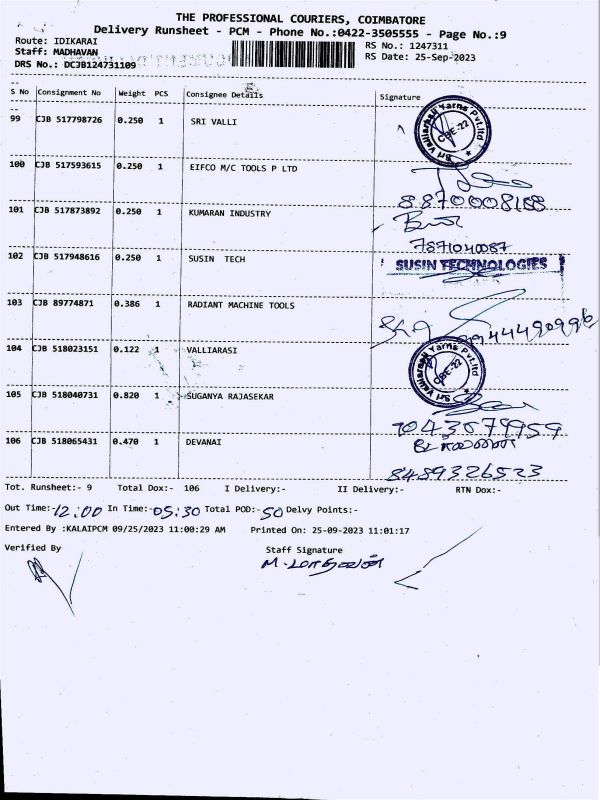 THE PROFESSIONAL COURIERS, COIMBATORE
Delivery Runsheet - PCM - Phone No.:0422-3505555 - Page No.:9
Route: IDIKARAI
RS No.: 1247311
Staff: MADHAVAN
RS Date: 25-Sep-2023
DRS No.: DCJB124731109
S No Consignment No Weight PCS Consignee Details Signature
99 CJB 517798726 0.250 1 SRI VALLI
Sri Valliarasi Yarns Pvt.Ltd CBE-22
100 CJB 517593615 0.250 1 EIFCO M/C TOOLS P LTD
8870008168
101 CJB 517873892 0.250 1 KUMARAN INDUSTRY
7871040087
102 CJB 517948616 0.250 1 SUSIN TECH
SUSIN TECHNOLOGIES
103 CJB 89774871 0.386 1 RADIANT MACHINE TOOLS
104 CJB 518023151 0.122 1 VALLIARASI
Sri Valliarasi Yarns Pvt.Ltd CBE-22
105 CJB 518040731 0.820 1 SUGANYA RAJASEKAR
106 CJB 518065431 0.470 1 DEVANAI
8489326523
Tot. Runsheet:- 9 Total Dox:- 106 I Delivery:- II Delivery:- RTN Dox:-
Out Time:-12:00 In Time:-05:30 Total POD:-50 Delvy Points:-
Entered By :KALAIPCM 09/25/2023 11:00:29 AM Printed On: 25-09-2023 11:01:17
Verified By Staff Signature